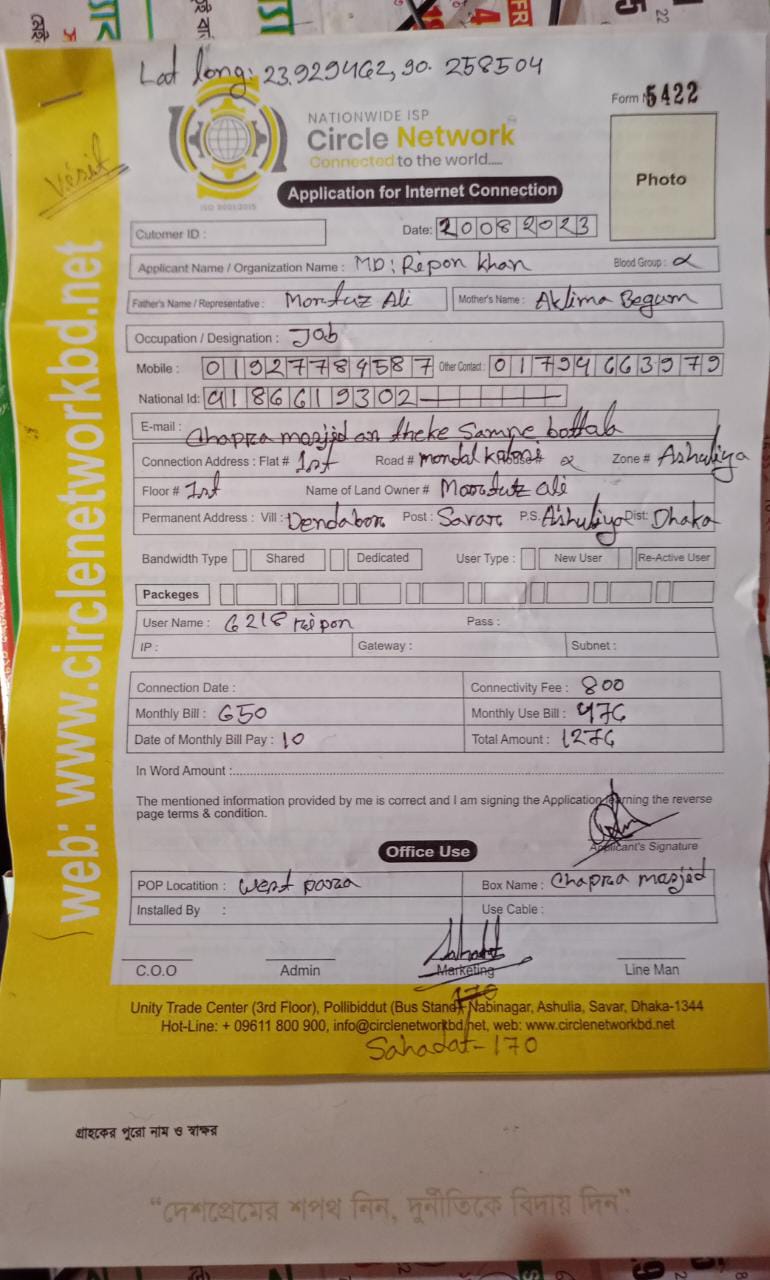 Lat long: 23.929462, 90.258504
Form N 5422
NATIONWIDE ISP
Circle Network
Connected to the world.....
ISO 9001:2015
Visit
Photo
Application for Internet Connection
Cutomer ID :
Date: 20082023
Applicant Name / Organization Name : MD: Ripon Khan Blood Group :
Father's Name / Representative : Mortuz Ali Mother's Name : Aklima Begum
Occupation / Designation : Job
Mobile : 01927789587 Other Contact : 01794663979
National Id: 9186619302
E-mail : Chapra masjid ar theke Samne bottala
Connection Address : Flat # 1st Road # mondal Zone # Ashuliya
Floor # 1st Name of Land Owner # Mortuz ali
Permanent Address : Vill : Dendabor Post : Savar P.S. Ashuliya Dist: Dhaka
Bandwidth Type Shared Dedicated User Type : New User Re-Active User
Packeges
User Name : 6218 ripon Pass :
IP : Gateway : Subnet :
Connection Date : Connectivity Fee : 800
Monthly Bill : 650 Monthly Use Bill : 476
Date of Monthly Bill Pay : 10 Total Amount : 1276
In Word Amount :
The mentioned information provided by me is correct and I am signing the Application learning the reverse
page terms & condition.
Applicant's Signature
Office Use
POP Locatition : West para Box Name : Chapra masjid
Installed By : Use Cable :
Sahadat
C.O.O Admin Marketing Line Man
170
Unity Trade Center (3rd Floor), Pollibiddut (Bus Stand), Nabinagar, Ashulia, Savar, Dhaka-1344
Hot-Line: + 09611 800 900, info@circlenetworkbd.net, web: www.circlenetworkbd.net
Sahadat-170
web: www.circlenetworkbd.net
গ্রাহকের পুরো নাম ও স্বাক্ষর
“দেশপ্রেমের শপথ নিন, দুর্নীতিকে বিদায় দিন”